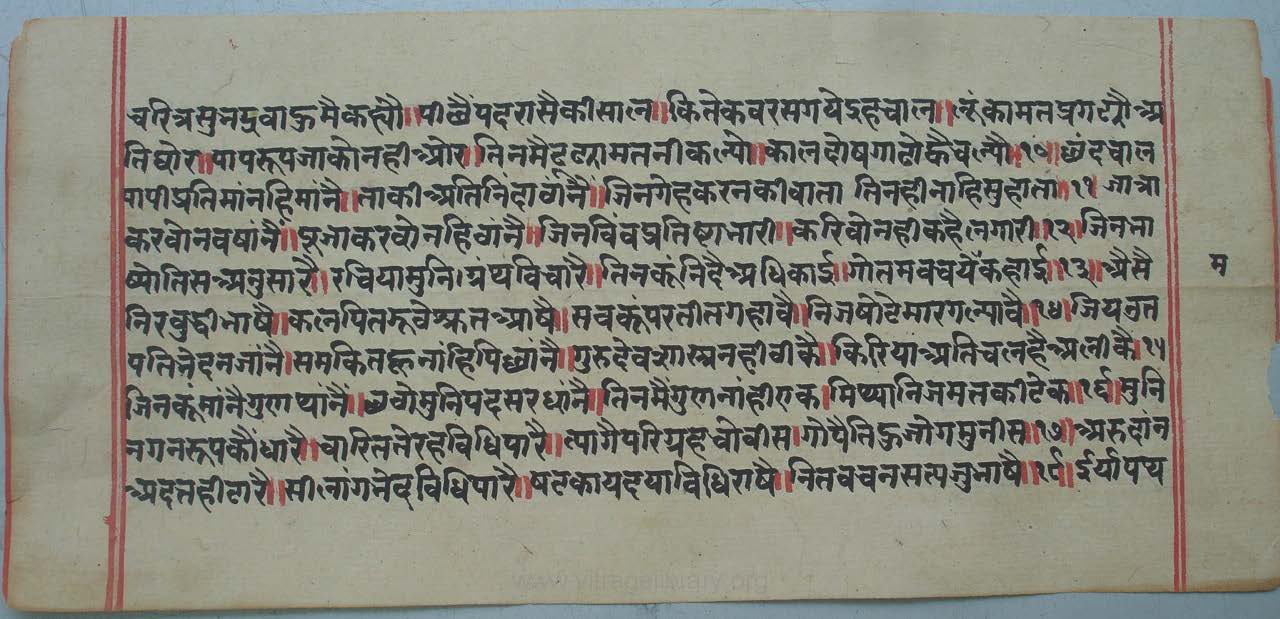 चरित्रसुनदुवाऊमैकह्यौ॥पीछैंपदरासैकीसाल॥कितेकवरसगयेइहचाल॥लुंकामतप्रगट्यौअ
तिघोर॥पापरूपजाकोनहीओर॥तिनमैढूढ्यामतनीकल्यो॥कालदोषगाढोकैचल्यौ॥१०॥छंदचाल
पापीप्रतिमांनहिमांनै॥ताकीअतिनिंदावांनैं॥जिनगेहकरनकीवाता तिनहीनाहिसुहाता॥११ जात्रा
करवोनवषांनैं॥पूजाकरवोनहिवांनै॥जिनविंवप्रतिष्टाभारी॥करिवोनहीकहैलगारी॥१२॥जिनभा
ष्योतिसअनुसारै॥रचियामुनि।ग्रंथविचारै॥तिनकूंनिंदैअधिकाई॥गोतमवचयेंकहाई॥१३॥अैसै
निरवुद्धीभाषै॥कलपितझूवेश्रुतआषै॥सवकूंपरतीतगहावै॥निजषोटेमारगल्यावै॥१४॥जियव्रत
पतिभेदनजांनै।समकितहूनांहिपिछांनै॥गुरुदेवशास्त्रनहीठीकै॥किरियांअतिचलहैअलीकै॥१५
जिनकूंमांनैगुणथांनैं॥छठोमुनिपदसरधांनै॥तिनमैंगुणनांहीएक।मिथ्यानिजमतकीटेक॥१६॥मुनि
नगनरूपकौधारै॥चारितनेरहविधिपारै॥त्यागैपरिग्रहचोवीस।गोपैतिहुजोगमुनीस॥१७॥अरुदांन
अदतहीटारै॥सीलांगभेदविधिपारै॥षटकायदयाविधिराषै॥नितवचनसत्यजुभाषै॥१८॥ईर्यापथ
म
www.vitragejinvany.org